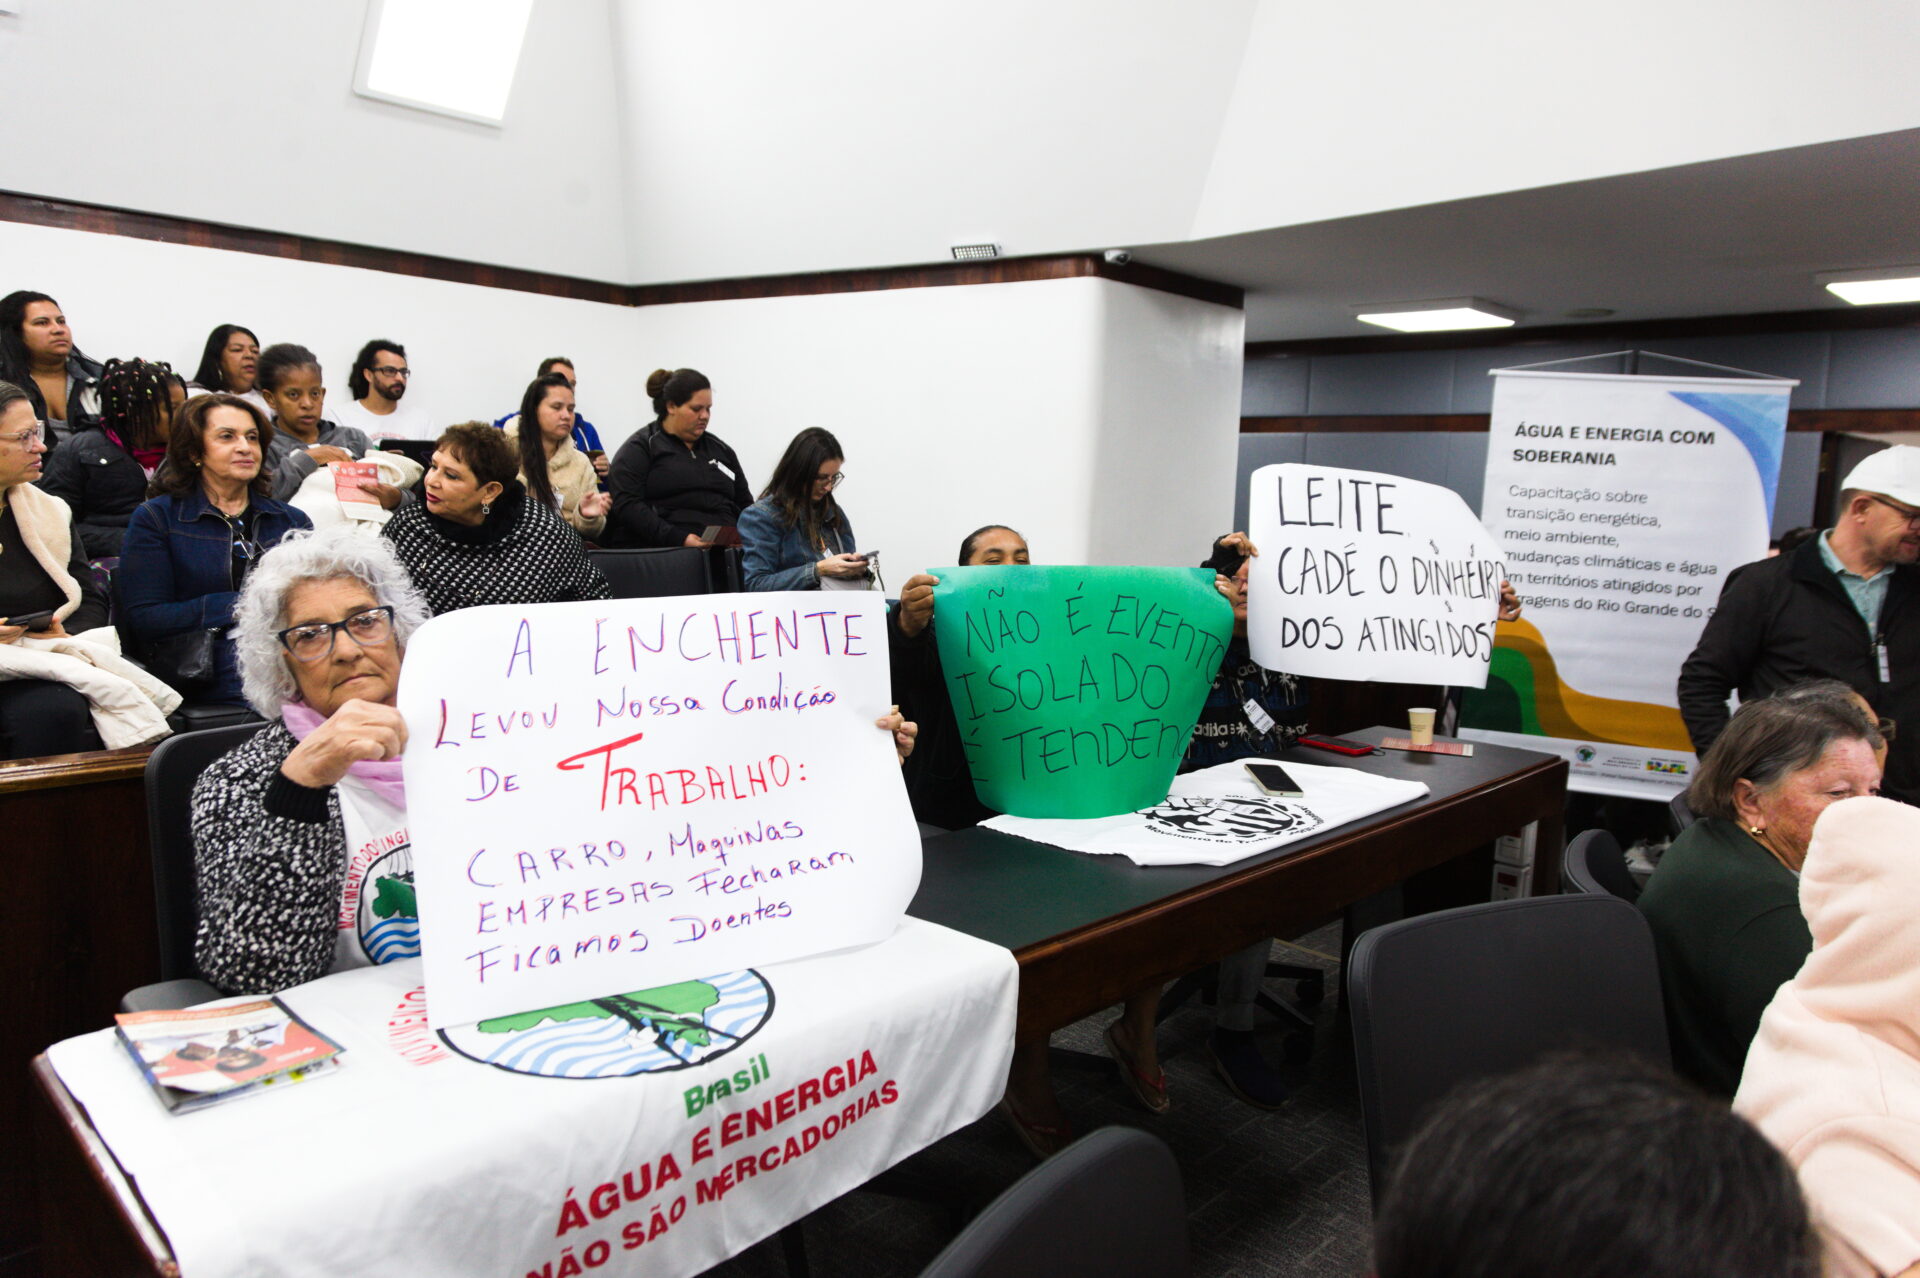 A ENCHENTE
LEVOU NOSSA CONDIÇÃO
DE TRABALHO:
CARRO, MAQUINAS
EMPRESAS FECHARAM
FICAMOS DOENTES
NÃO É EVENTO
ISOLADO
É TENDENC
LEITE,
CADÊ O DINHEIR
DOS ATINGIDOS?
ÁGUA E ENERGIA COM
SOBERANIA
Capacitação sobre
transição energética,
meio ambiente,
mudanças climáticas e água
em territórios atingidos por
rragens do Rio Grande do S
adidas
MOVIMENTO DO
MOVIMENTO
Brasil
ÁGUA E ENERGIA
NÃO SÃO MERCADORIAS
Movimento de Tra